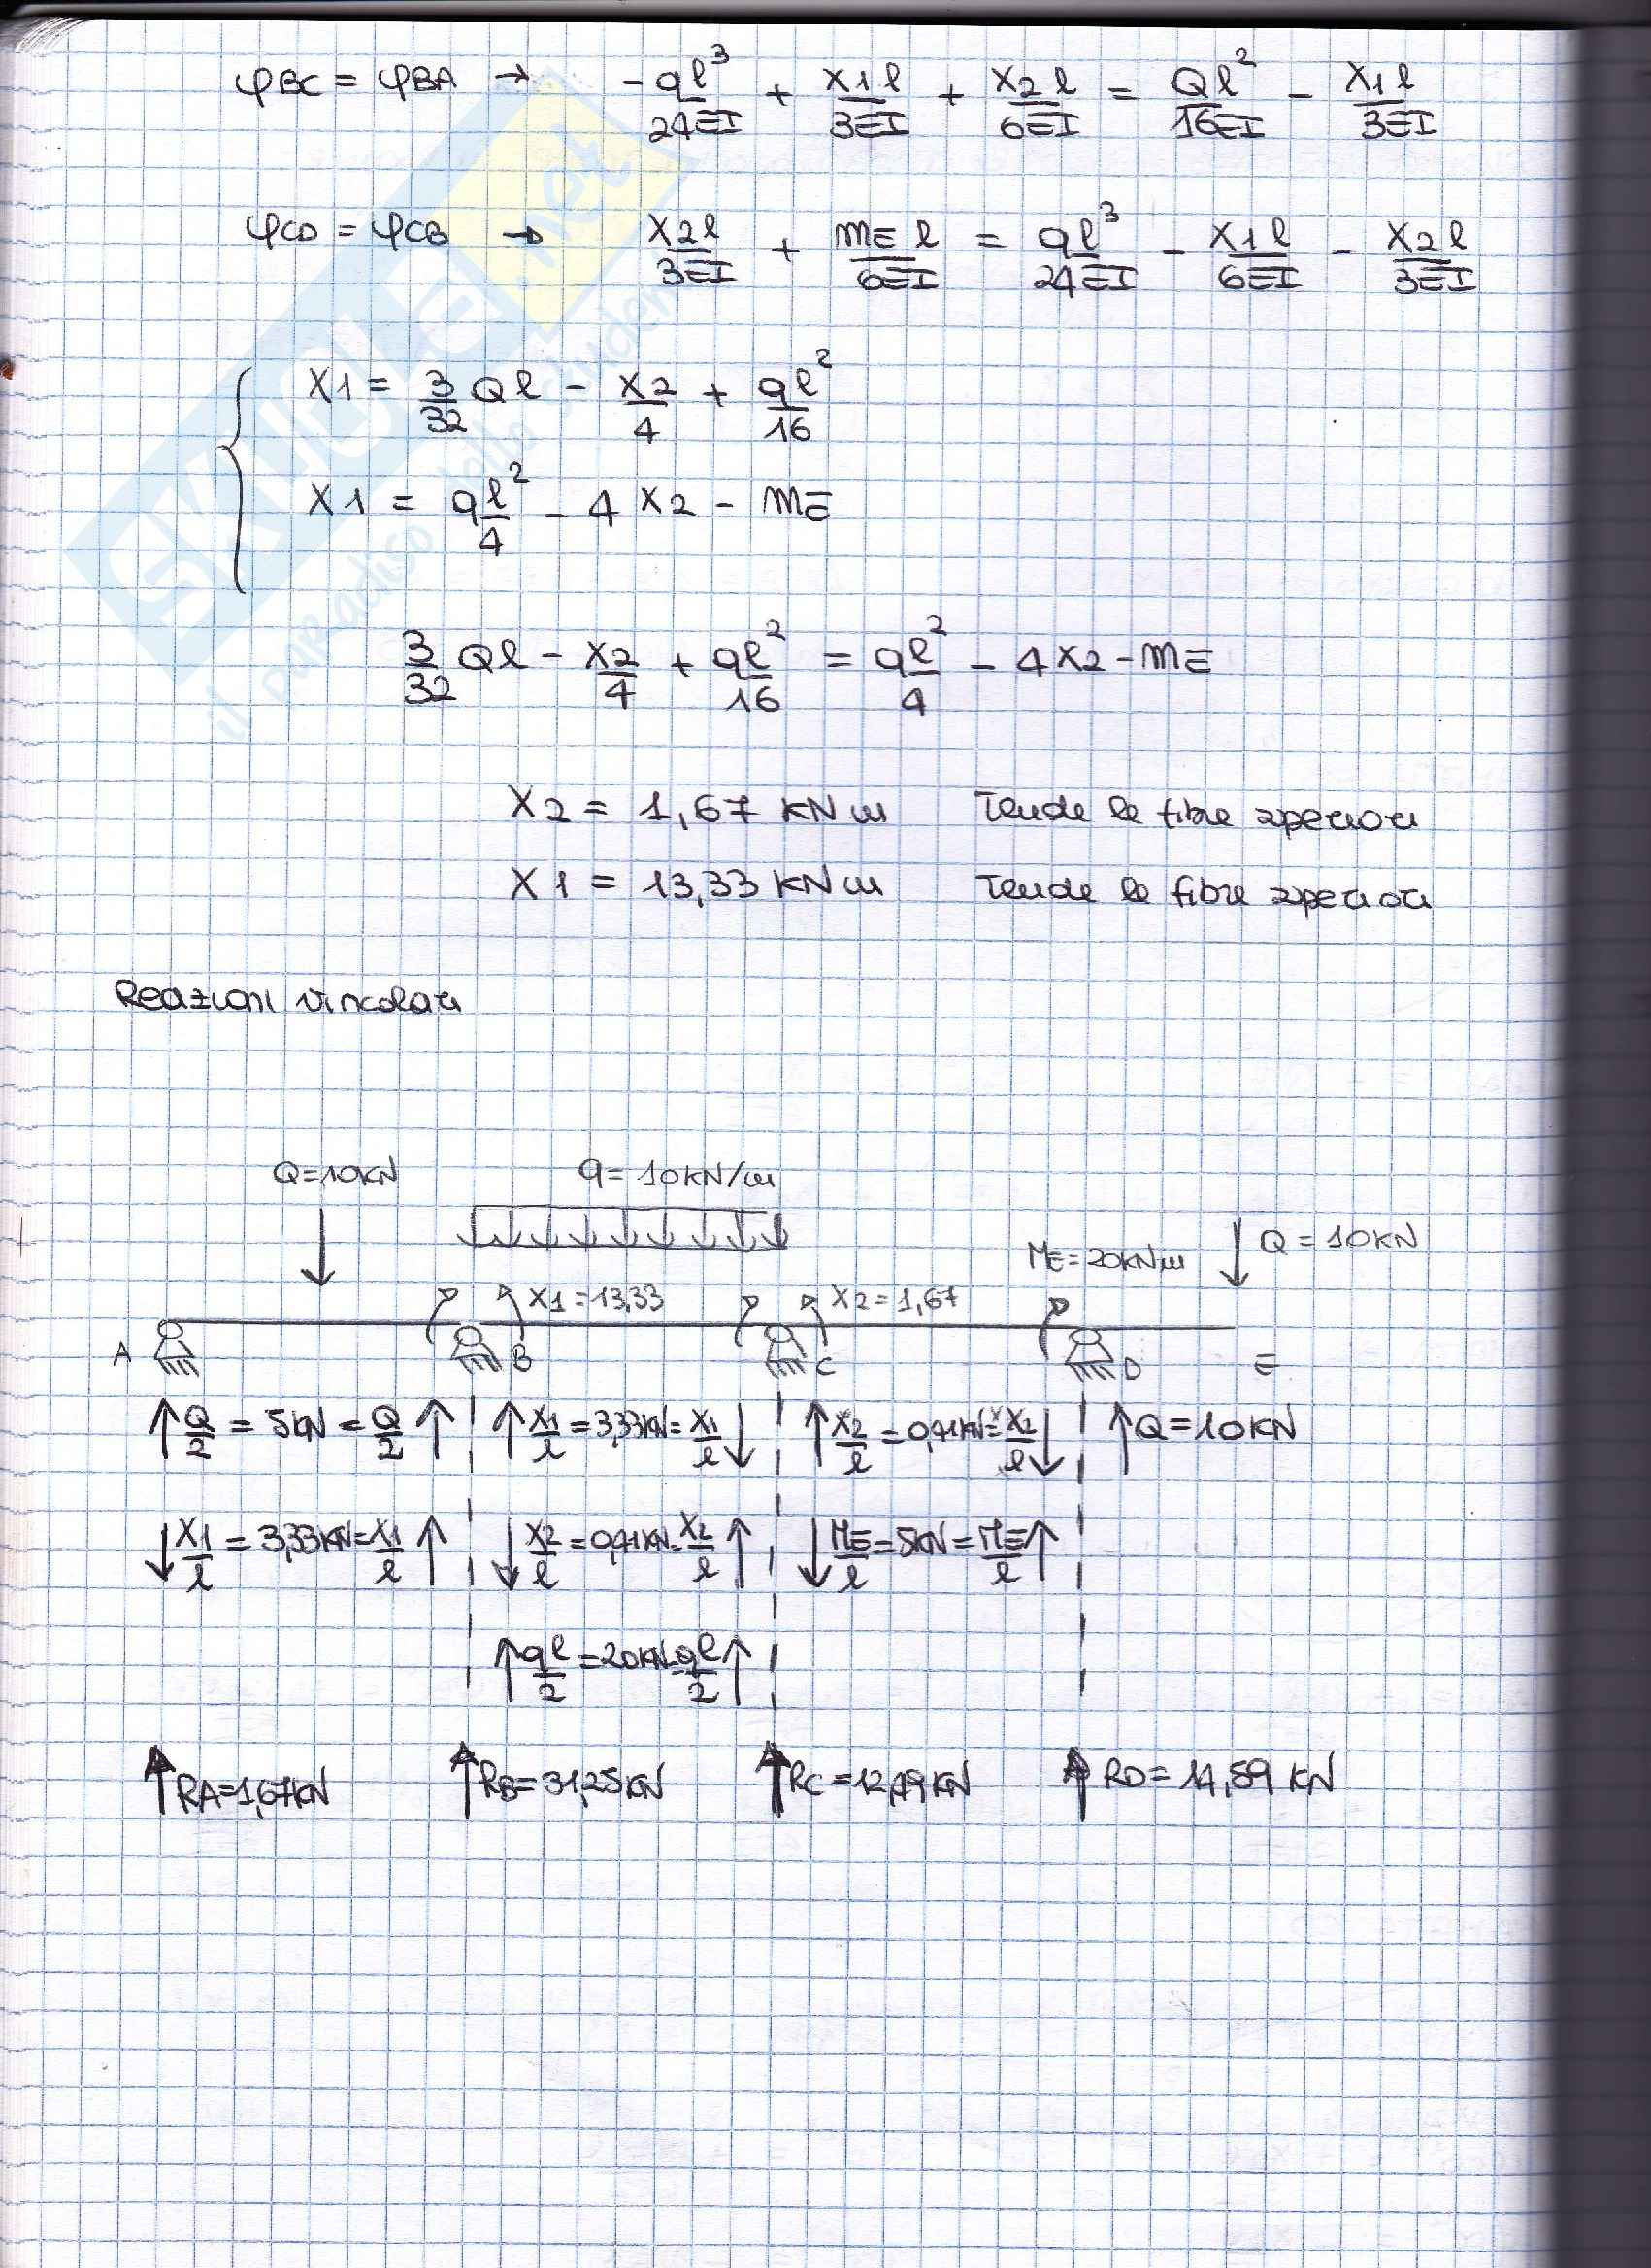 φBC = φBA → - ql³/24EI + X1l/3EI + X2l/6EI = Ql²/16EI - X1l/3EI
φCD = φCB → X2l/3EI + mE l/6EI = ql³/24EI - X1l/6EI - X2l/3EI
X1 = 3/32 Ql - X2/4 + ql²/16
X1 = ql²/4 - 4 X2 - mE
3/32 Ql - X2/4 + ql²/16 = ql²/4 - 4X2 - mE
X2 = 1,67 KNm Tende le fibre superiori
X1 = 13,33 KNm Tende le fibre superiori
Reazioni vincolari
Q=10KN q= 10KN/m
ME=20KNm Q=10KN
X1=13,33 X2=1,67
A B C D E
Q/2 = 5KN = Q/2 X1/l = 3,33KN = X1/l X2/l = 0,41KN = X2/l Q=10KN
X1/l = 3,33KN = X1/l X2/l = 0,41KN = X2/l ME/l = 5KN = ME/l
ql/2 = 20KN = ql/2
RA=1,67KN RB=31,25KN RC=12,49KN RD=14,59 KN
SKUOLA.net
il paradiso dello studente